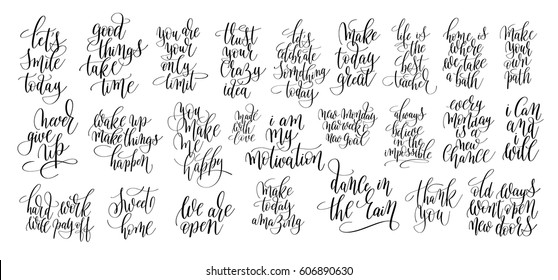 let's
smile
today
good
things
take
time
you are
your
only
limit
trust
your
crazy
idea
let's
celebrate
something
today
make
today
great
life is
the best
teacher
home is
where
we take
a bath
make
your
own
path
never
give
up
wake up
make things
happen
you
make
me
happy
made
with
love
i am
my
motivation
new monday
new week
new goal
always
believe
in the
impossible
every
monday
is a
new
chance
i can
and i
will
hard work
will pay off
sweet
home
we are
open
make
today
amazing
dance in
the rain
thank
you
old ways
wont open
new doors
shutterstock.com · 606890630